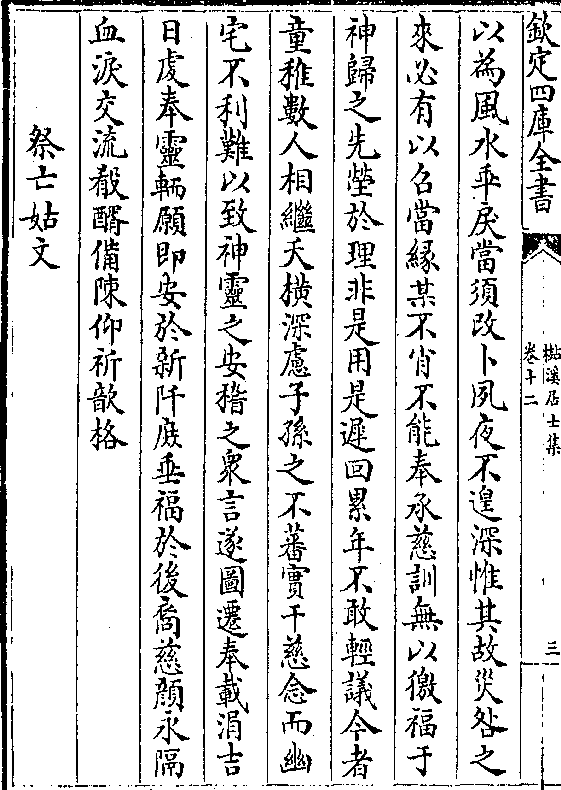 欽定四庫全書
㯝溪居士集
卷十二
三
以為風水乖戾當須改卜夙夜不遑深惟其故災咎之
來必有以召當緣某不肖不能奉承慈訓無以徼福于
神歸之先塋於理非是用是遲回累年不敢輕議今者
童稚數人相繼夭橫深慮子孫之不蕃實干慈念而幽
宅不利難以致神靈之安稽之衆言遂圖遷奉載涓吉
日䖍奉靈輀願即安於新阡庶垂福於後裔慈顔永隔
血淚交流殽醑備陳仰祈歆格
祭亡姑文